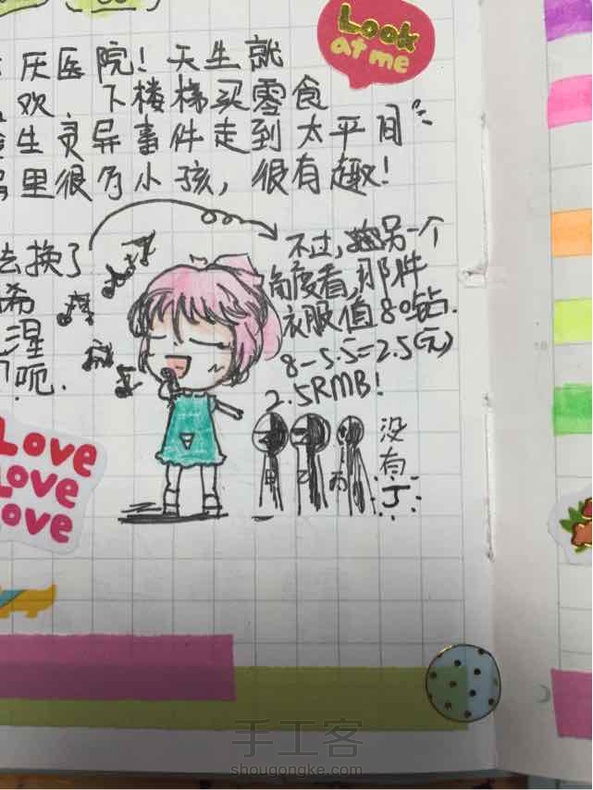 Look
at me
厌医院！天生就
欢，下楼梯买零食
生灵异事件走到太平间
里很多小孩，很有趣！
去换了
希
涅
呃.
不过，换另一个
角度看，那件
衣服值80钻.
8-5.5=2.5(元)
2.5RMB！
甲 乙 丙
没有丁
LOVE
LOVE
LOVE
手工客
shougongke.com